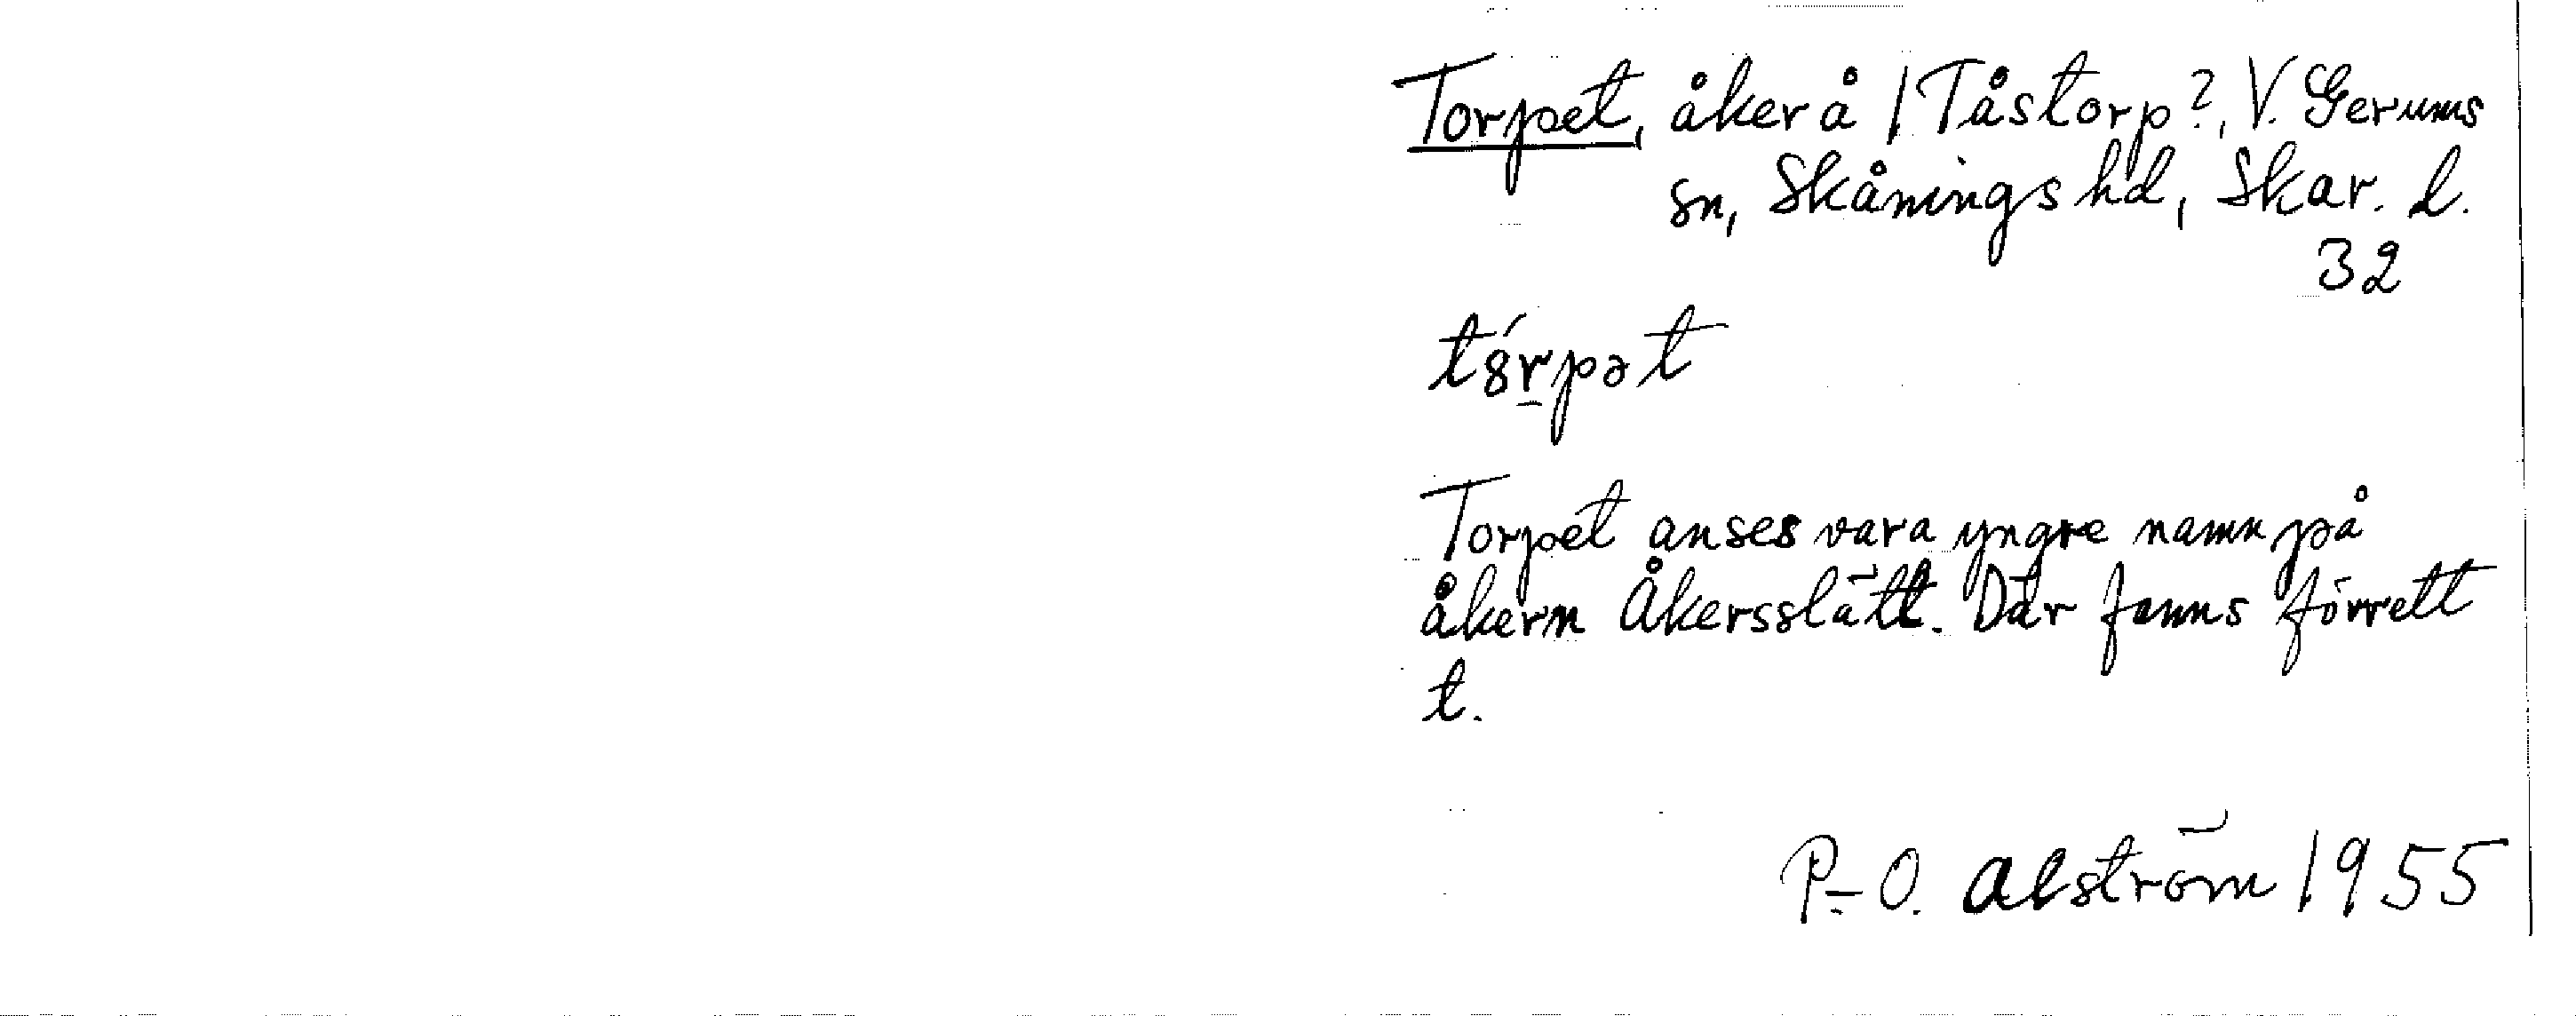 Torpet, åker å 1 Tåstorp?, V. Gerums
sn, Skånings hd, Skar. l.
32
tórpət
Torpet anses vara yngre namn på
åkern Åkersslätt. Där fanns förr ett
t.
P.-O. Alström 1955